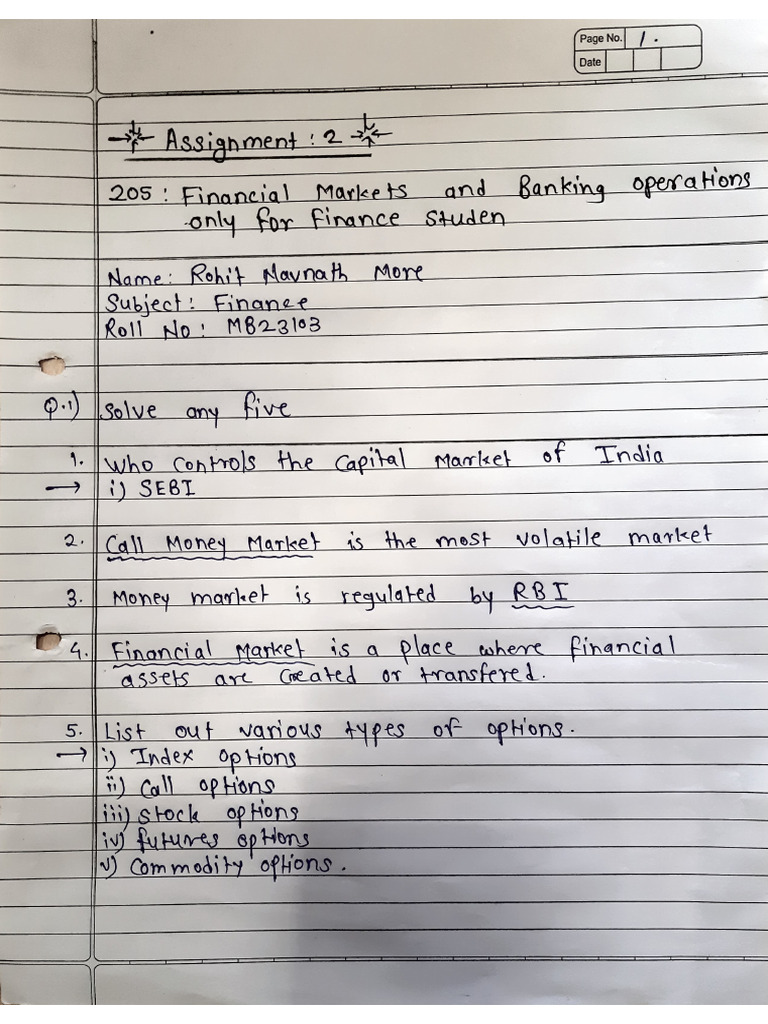 Page No. 1.
Date
Assignment : 2
205 : Financial Markets and Banking operations
only for Finance Studen
Name: Rohit Navnath More
Subject: Finance
Roll No: MB23103
Q.1) Solve any five
1. Who controls the Capital Market of India
→ i) SEBI
2. Call Money Market is the most volatile market
3. Money market is regulated by RBI
4. Financial Market is a place where financial
assets are created or transfered.
5. List out various types of options.
→ i) Index options
ii) Call options
iii) Stock options
iv) futures options
v) Commodity options.